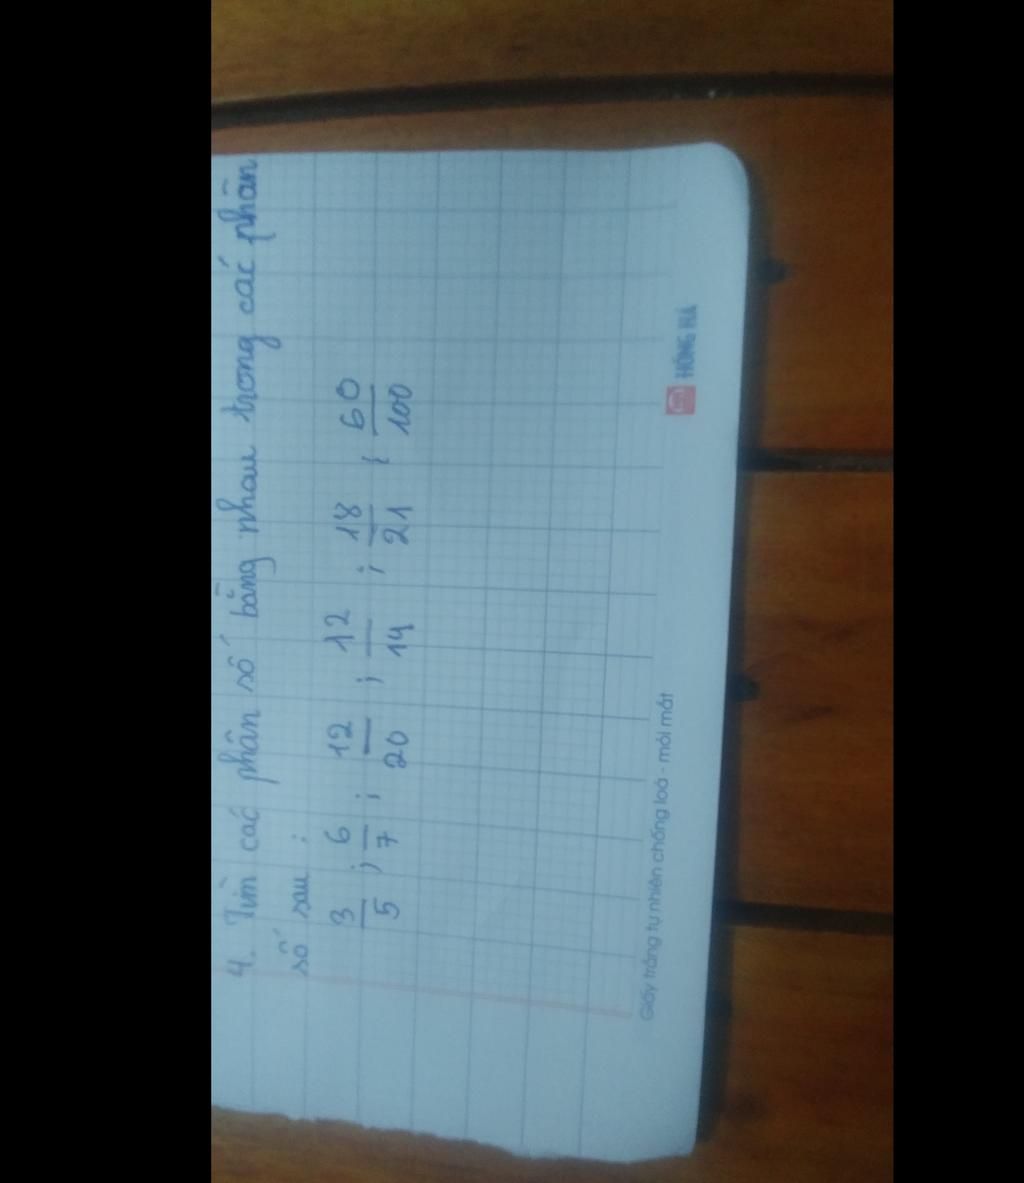 4. Tìm các phân số bằng nhau trong các phân
số sau :
3/5 ; 6/7 ; 12/20 ; 12/14 ; 18/21 ; 60/100
Giấy trắng tự nhiên chống loá - mỏi mắt
HỒNG HÀ